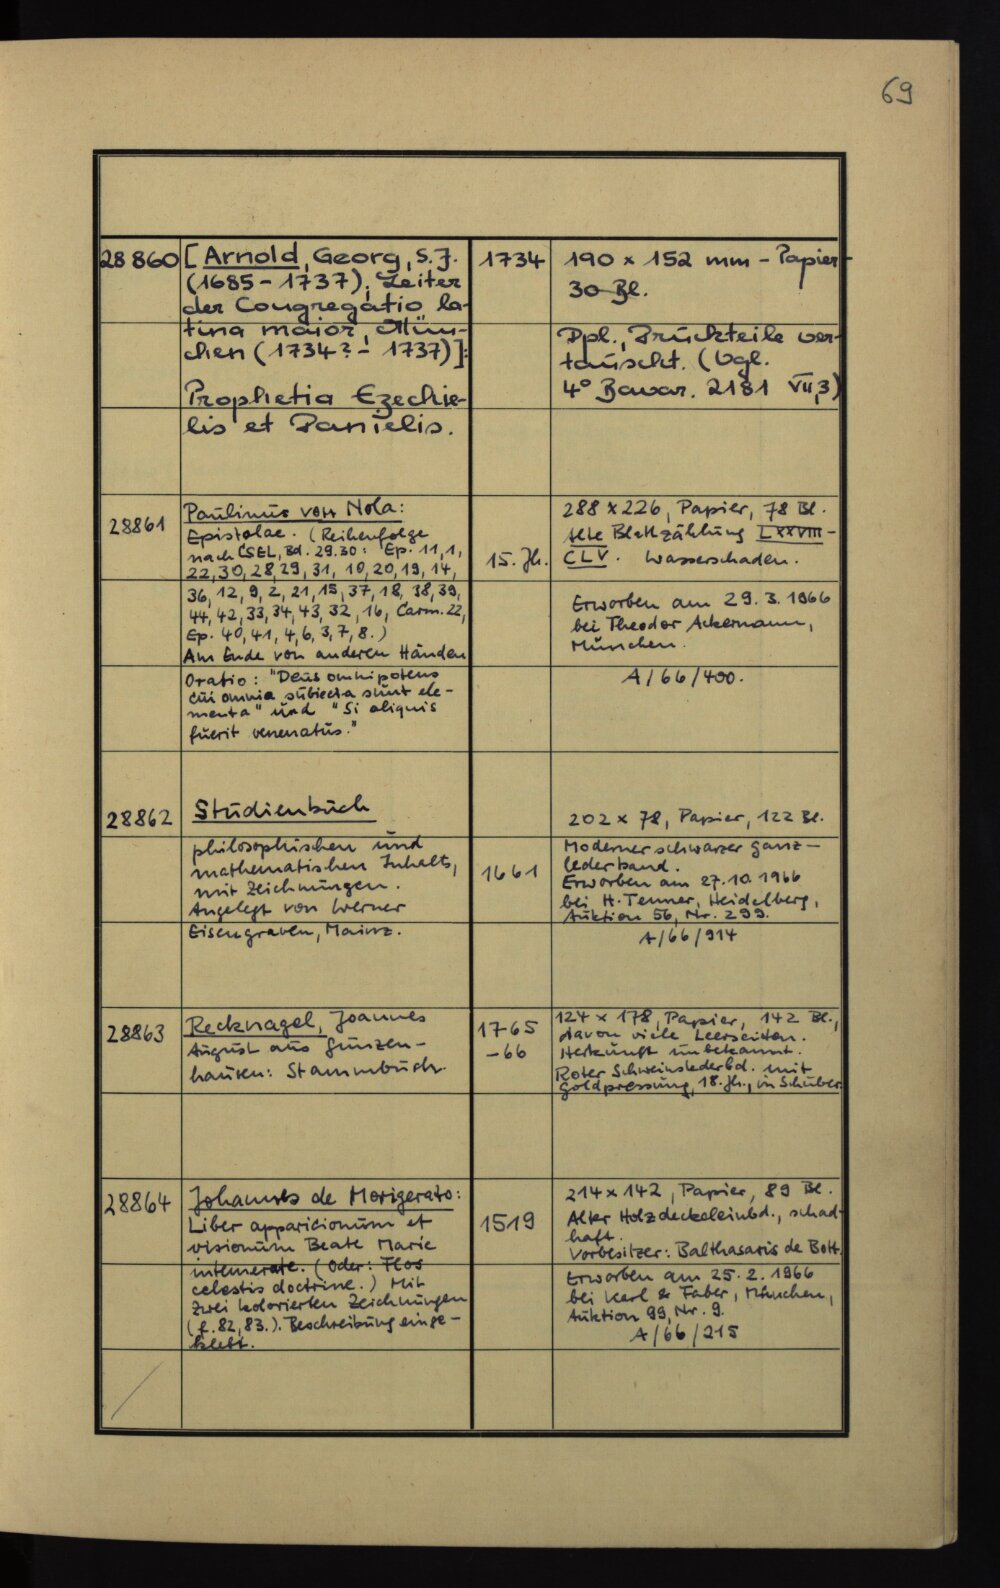 69
28 860
[Arnold, Georg, S.J.
(1685 - 1737), Leiter
der Congregatio la-
tina maior, Mün-
chen (1734? - 1737)]:
Prophetia Ezechie-
lis et Danielis.
1734
190 x 152 mm - Papier -
30 Bl.
Ppl., Druckteile ver-
tauscht. (Vgl.
4° Bavar. 2181 VII,3)
28861
Paulinus von Nola:
Epistolae. (Reihenfolge
nach CSEL, Bd. 29.30: Ep. 11, 1,
22, 30, 28, 29, 31, 10, 20, 19, 14,
36, 12, 9, 2, 21, 15, 37, 18, 38, 39,
44, 42, 33, 34, 43, 32, 16, Carm. 22,
Ep. 40, 41, 4, 6, 3, 7, 8.)
Am Ende von anderen Händen
Oratio: "Deus omnipotens
cui omnia subiecta sunt ele-
menta" und "Si aliquis
fuerit venenatus."
15. Jh.
288 x 226, Papier, 78 Bl.
Alte Blattzählung LXXVIII -
CLV. Wasserschaden.
Erworben am 29. 3. 1966
bei Theodor Ackermann,
München.
A/66/400.
28862
Studienbuch
philosophischen und
mathematischen Inhalts,
mit Zeichnungen.
Angelegt von Werner
Eisengraven, Mainz.
1661
202 x 78, Papier, 122 Bl.
Moderner schwarzer Ganz-
lederband.
Erworben am 27.10.1966
bei H. Tenner, Heidelberg,
Auktion 56, Nr. 299.
A/66/914
28863
Recknagel, Joannes
August aus Gunzen-
hausen: Stammbuch.
1765
-66
124 x 178, Papier, 142 Bl.,
davon viele Leerseiten.
Herkunft unbekannt.
Roter Schweinslederbd. mit
Goldpressung, 18. Jh., in Schuber
28864
Johannes de Morigerato:
Liber apparicionum et
visionum Beate Marie
intemerate. (Oder: Flos
celestis doctrine.) Mit
zwei kolorierten Zeichnungen
(f. 82, 83.). Beschreibung einge-
klebt.
1519
214 x 142, Papier, 89 Bl.
Alter Holzdeckeleinbd., schad-
haft.
Vorbesitzer: Balthasaris de Bott.
Erworben am 25. 2. 1966
bei Karl & Faber, München,
Auktion 99, Nr. 9.
A/66/215